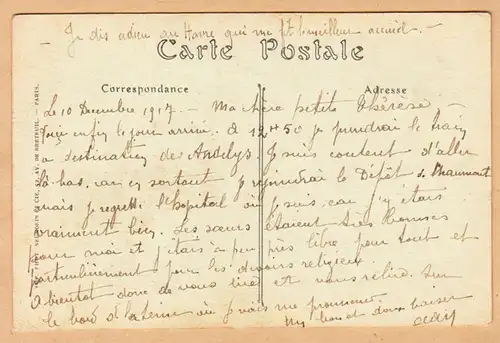 Je dis adieu au Havre qui me fit l'meilleur accueil. -
Carte Postale
Correspondance
Adresse
Le 10 Decembre 1917. - Ma chère petite Thérèse, -
enfin le jour arrivé. à 12H50 je prendrai le train
à destination des Andelys. Je suis content d'aller
là-bas, car en sortant je rejoindrai le Dépôt de Chaumont
mais je regrette l'hôpital où je suis car j'y étais
vraiment bien. Les sœurs étaient très bonnes
pour moi et j'étais à peu près libre pour tout et
particulièrement pour les devoirs religieux.
A bientôt donc de vous lire et vous relire. Sur
le bord d' où je vais me promener.
Un bon et doux baiser